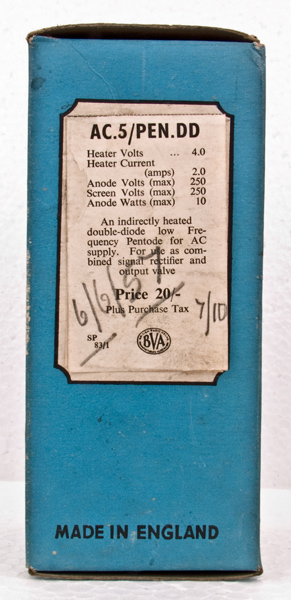 AC.5/PEN.DD
Heater Volts ... 4.0
Heater Current
(amps) 2.0
Anode Volts (max) 250
Screen Volts (max) 250
Anode Watts (max) 10
An indirectly heated
double-diode low Fre-
quency Pentode for AC
supply. For use as com-
bined signal rectifier and
output valve
Price 20/-
Plus Purchase Tax
6/6/57
7/10
SP
83/1
BVA
MADE IN ENGLAND